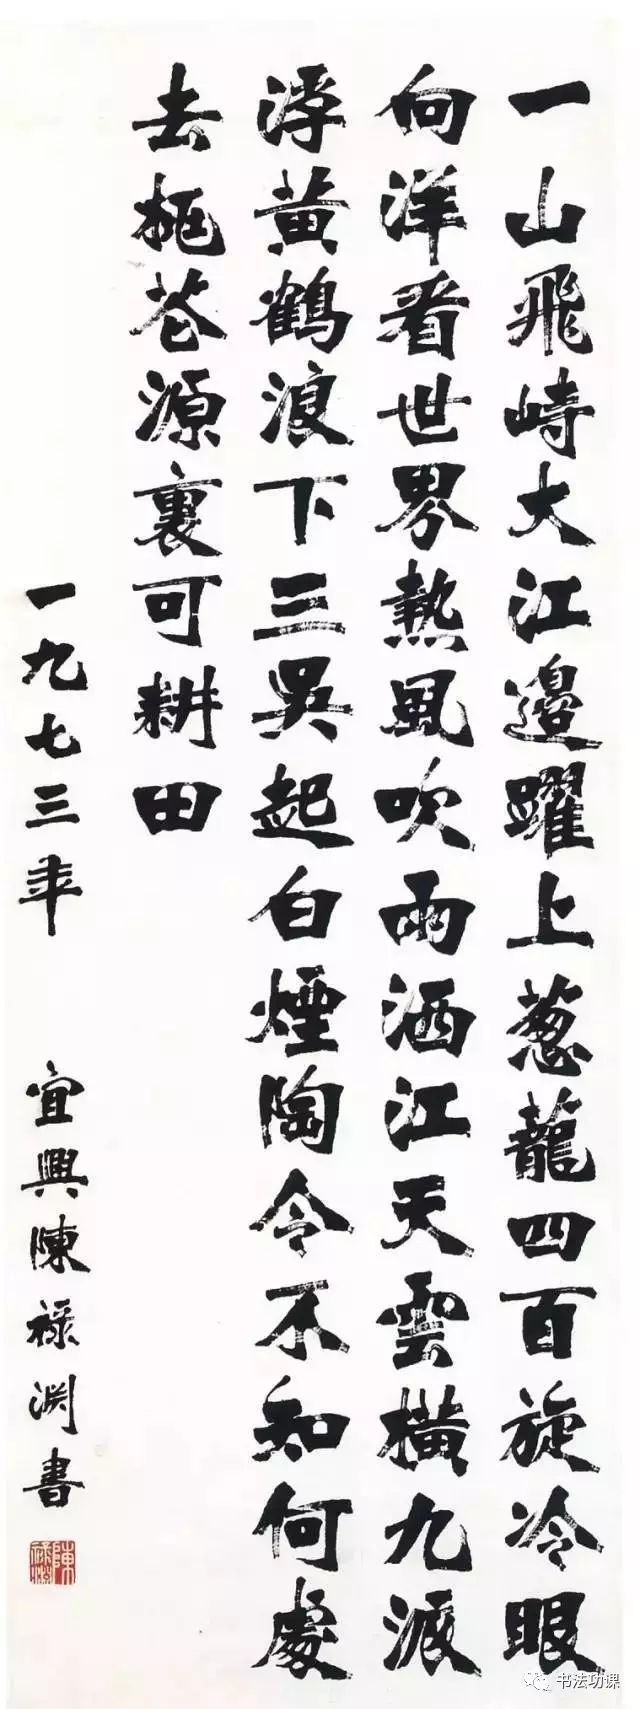 一山飛峙大江邊躍上葱蘢四百旋冷眼
向洋看世界熱風吹雨洒江天雲橫九派
浮黄鶴浪下三吳起白煙陶令不知何處
去桃花源裏可耕田
一九七三年 宜興陳祿渊書
陳祿渊
书法功课